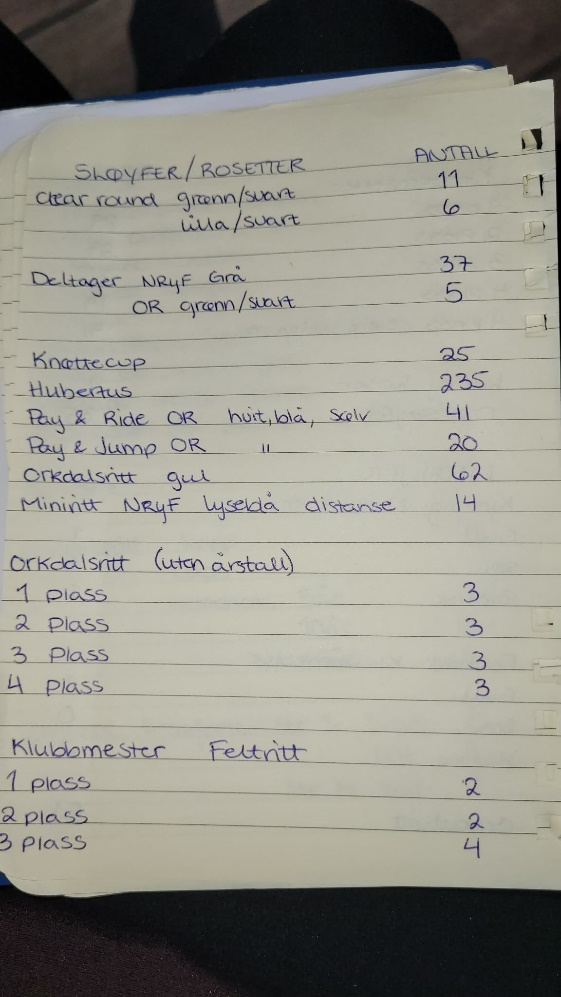 SLØYFER/ROSETTER ANTALL
clear round grønn/svart 11
lilla/svart 6
Deltager NRYF Grå 37
OR grønn/svart 5
Knøttecup 25
Hubertus 235
Pay & Ride OR hvit, blå, sølv 41
Pay & Jump OR " 20
Orkdalsritt gul 62
Miniritt NRYF lyseblå distanse 14
Orkdalsritt (uten årstall)
1 plass 3
2 plass 3
3 plass 3
4 plass 3
Klubbmester Feltritt
1 plass 2
2 plass 2
3 plass 4